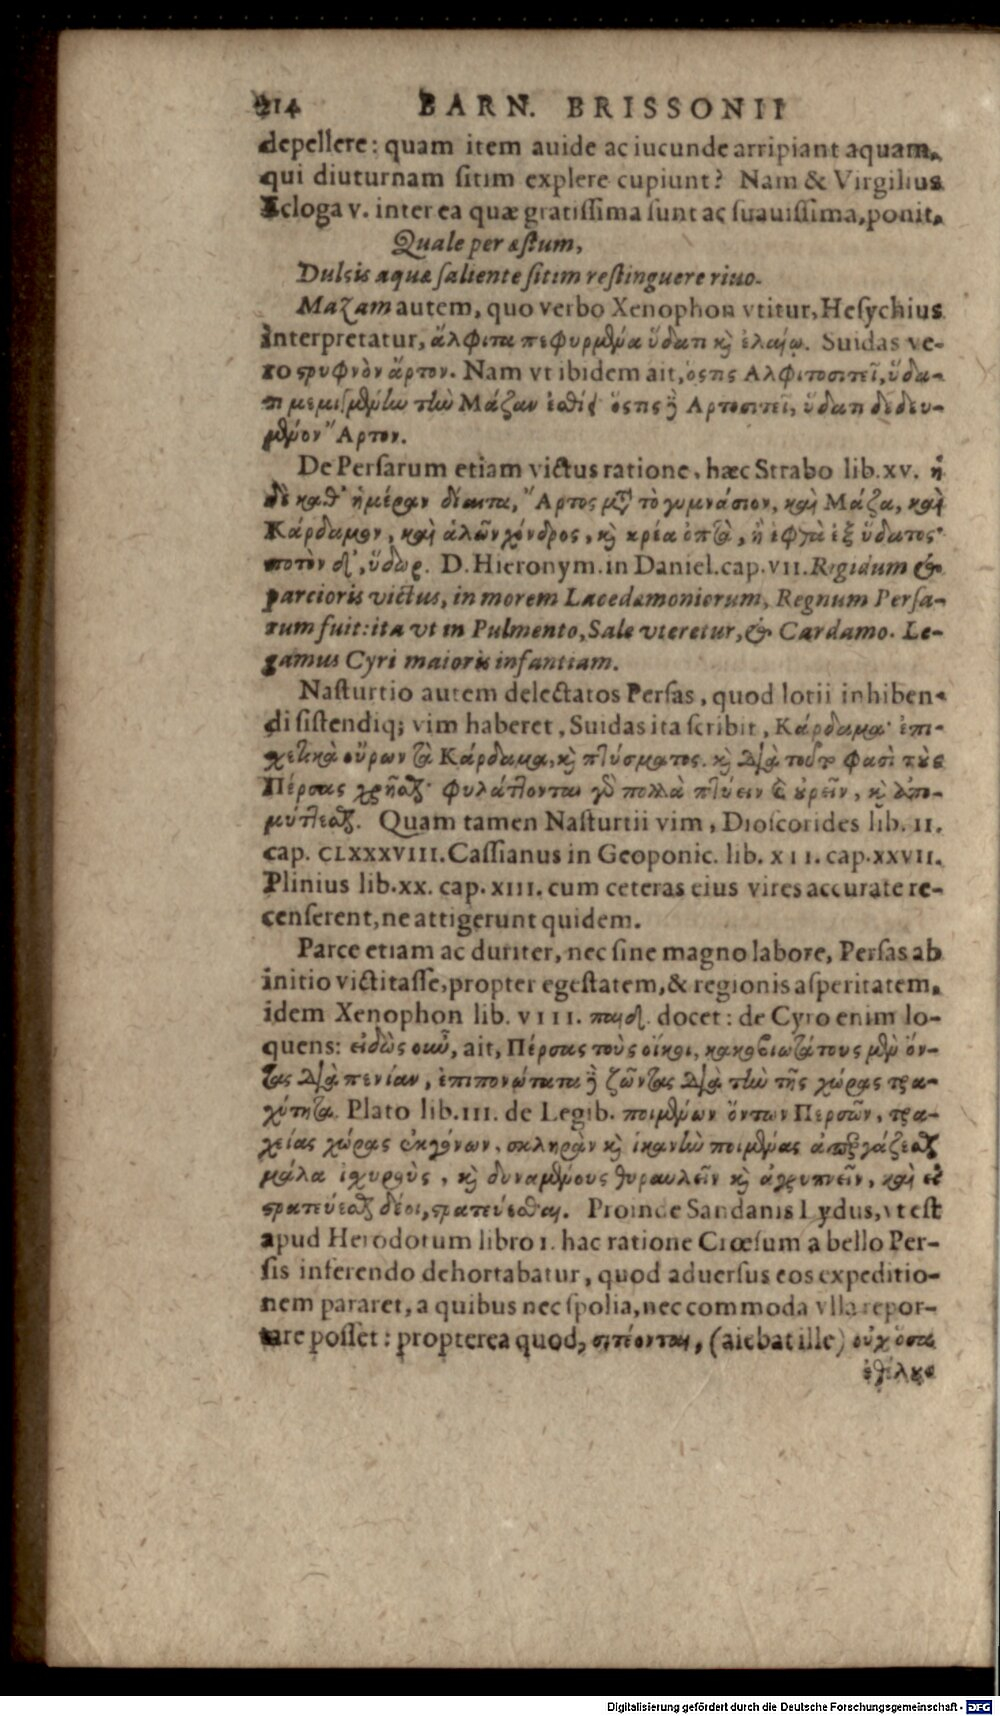 214 BARN. BRISSONII
depellere: quam item auide ac iucunde arripiant aquam,
qui diuturnam sitim explere cupiunt? Nam & Virgilius
Ecloga v. inter ea quæ gratissima sunt ac suauissima, ponit,
Quale per æstum,
Dulcis aquæ saliente sitim restinguere riuo.
Mazam autem, quo verbo Xenophon vtitur, Hesychius
interpretatur, ἄλφιτα πεφυρμένα ὕδατι καὶ ἐλαίῳ. Suidas ve-
ro στρυφνὸν ἄρτον. Nam vt ibidem ait, ὅστις Ἀλφιτοσιτεῖ, ὕδα-
τι μεμιγμένην τὴν Μάζαν ἐσθίει· ὅστις δὲ Ἀρτοσιτεῖ, ὕδατι δεδευ-
μένον Ἄρτον.
De Persarum etiam victus ratione, hæc Strabo lib. xv. ἡ
δὲ καθ' ἡμέραν δίαιτα, Ἄρτος μετὰ τὸ γυμνάσιον, καὶ Μάζα, καὶ
Κάρδαμον, καὶ ἁλῶν χόνδρος, καὶ κρέα ὀπτὰ, ἢ ἑφθὰ ἐξ ὕδατος·
ποτὸν δ', ὕδωρ. D. Hieronym. in Daniel. cap. VII. Rigidum &
parcioris victus, in morem Lacedæmoniorum, Regnum Persa-
rum fuit: ita vt in Pulmento, Sale vteretur, & Cardamo. Le-
gamus Cyri maioris infantiam.
Nasturtio autem delectatos Persas, quod lotii inhiben-
di sistendiq; vim haberet, Suidas ita scribit, Κάρδαμα· ἐπι-
χετικὰ οὔρων τὰ Κάρδαμα, καὶ πτύσματος. καὶ διὰ τοῦτο φασὶ τοὺς
Πέρσας χρῆσθαι· φυλάττονται γὰρ πολλὰ πτύειν καὶ οὐρεῖν, καὶ ἀπο-
μύττεσθαι. Quam tamen Nasturtii vim, Dioscorides lib. II.
cap. CLXXXVIII. Cassianus in Geoponic. lib. XII. cap. XXVII.
Plinius lib. XX. cap. XIII. cum ceteras eius vires accurate re-
censerent, ne attigerunt quidem.
Parce etiam ac duriter, nec sine magno labore, Persas ab
initio victitasse, propter egestatem, & regionis asperitatem,
idem Xenophon lib. VIII. παιδ. docet: de Cyro enim lo-
quens: εἰδὼς οὖν, ait, Πέρσας τοὺς οἴκοι, κακοβιωτάτους μὲν ὄν-
τας διὰ πενίαν, ἐπιπονώτατα δὲ ζῶντας διὰ τὴν τῆς χώρας τρα-
χύτητα. Plato lib. III. de Legib. ποιμένων ὄντων Περσῶν, τρα-
χείας χώρας ἐκγόνων, σκληρὰν καὶ ἱκανὴν ποιμένας ἀπεργάζεσθαι
μάλα ἰσχυροὺς, καὶ δυναμένους θυραυλεῖν καὶ ἀγρυπνεῖν, καὶ εἰ
στρατεύεσθαι δέοι, στρατεύεσθαι. Proinde Sandanis Lydus, vt est
apud Herodotum libro I. hac ratione Crœsum a bello Per-
sis inferendo dehortabatur, quod aduersus eos expeditio-
nem pararet, a quibus nec spolia, nec commoda vlla repor-
tare posset: propterea quod, σιτέονται, (aiebat ille) οὐχ ὅσα
ἐθέλου-
Digitalisierung gefördert durch die Deutsche Forschungsgemeinschaft - DFG